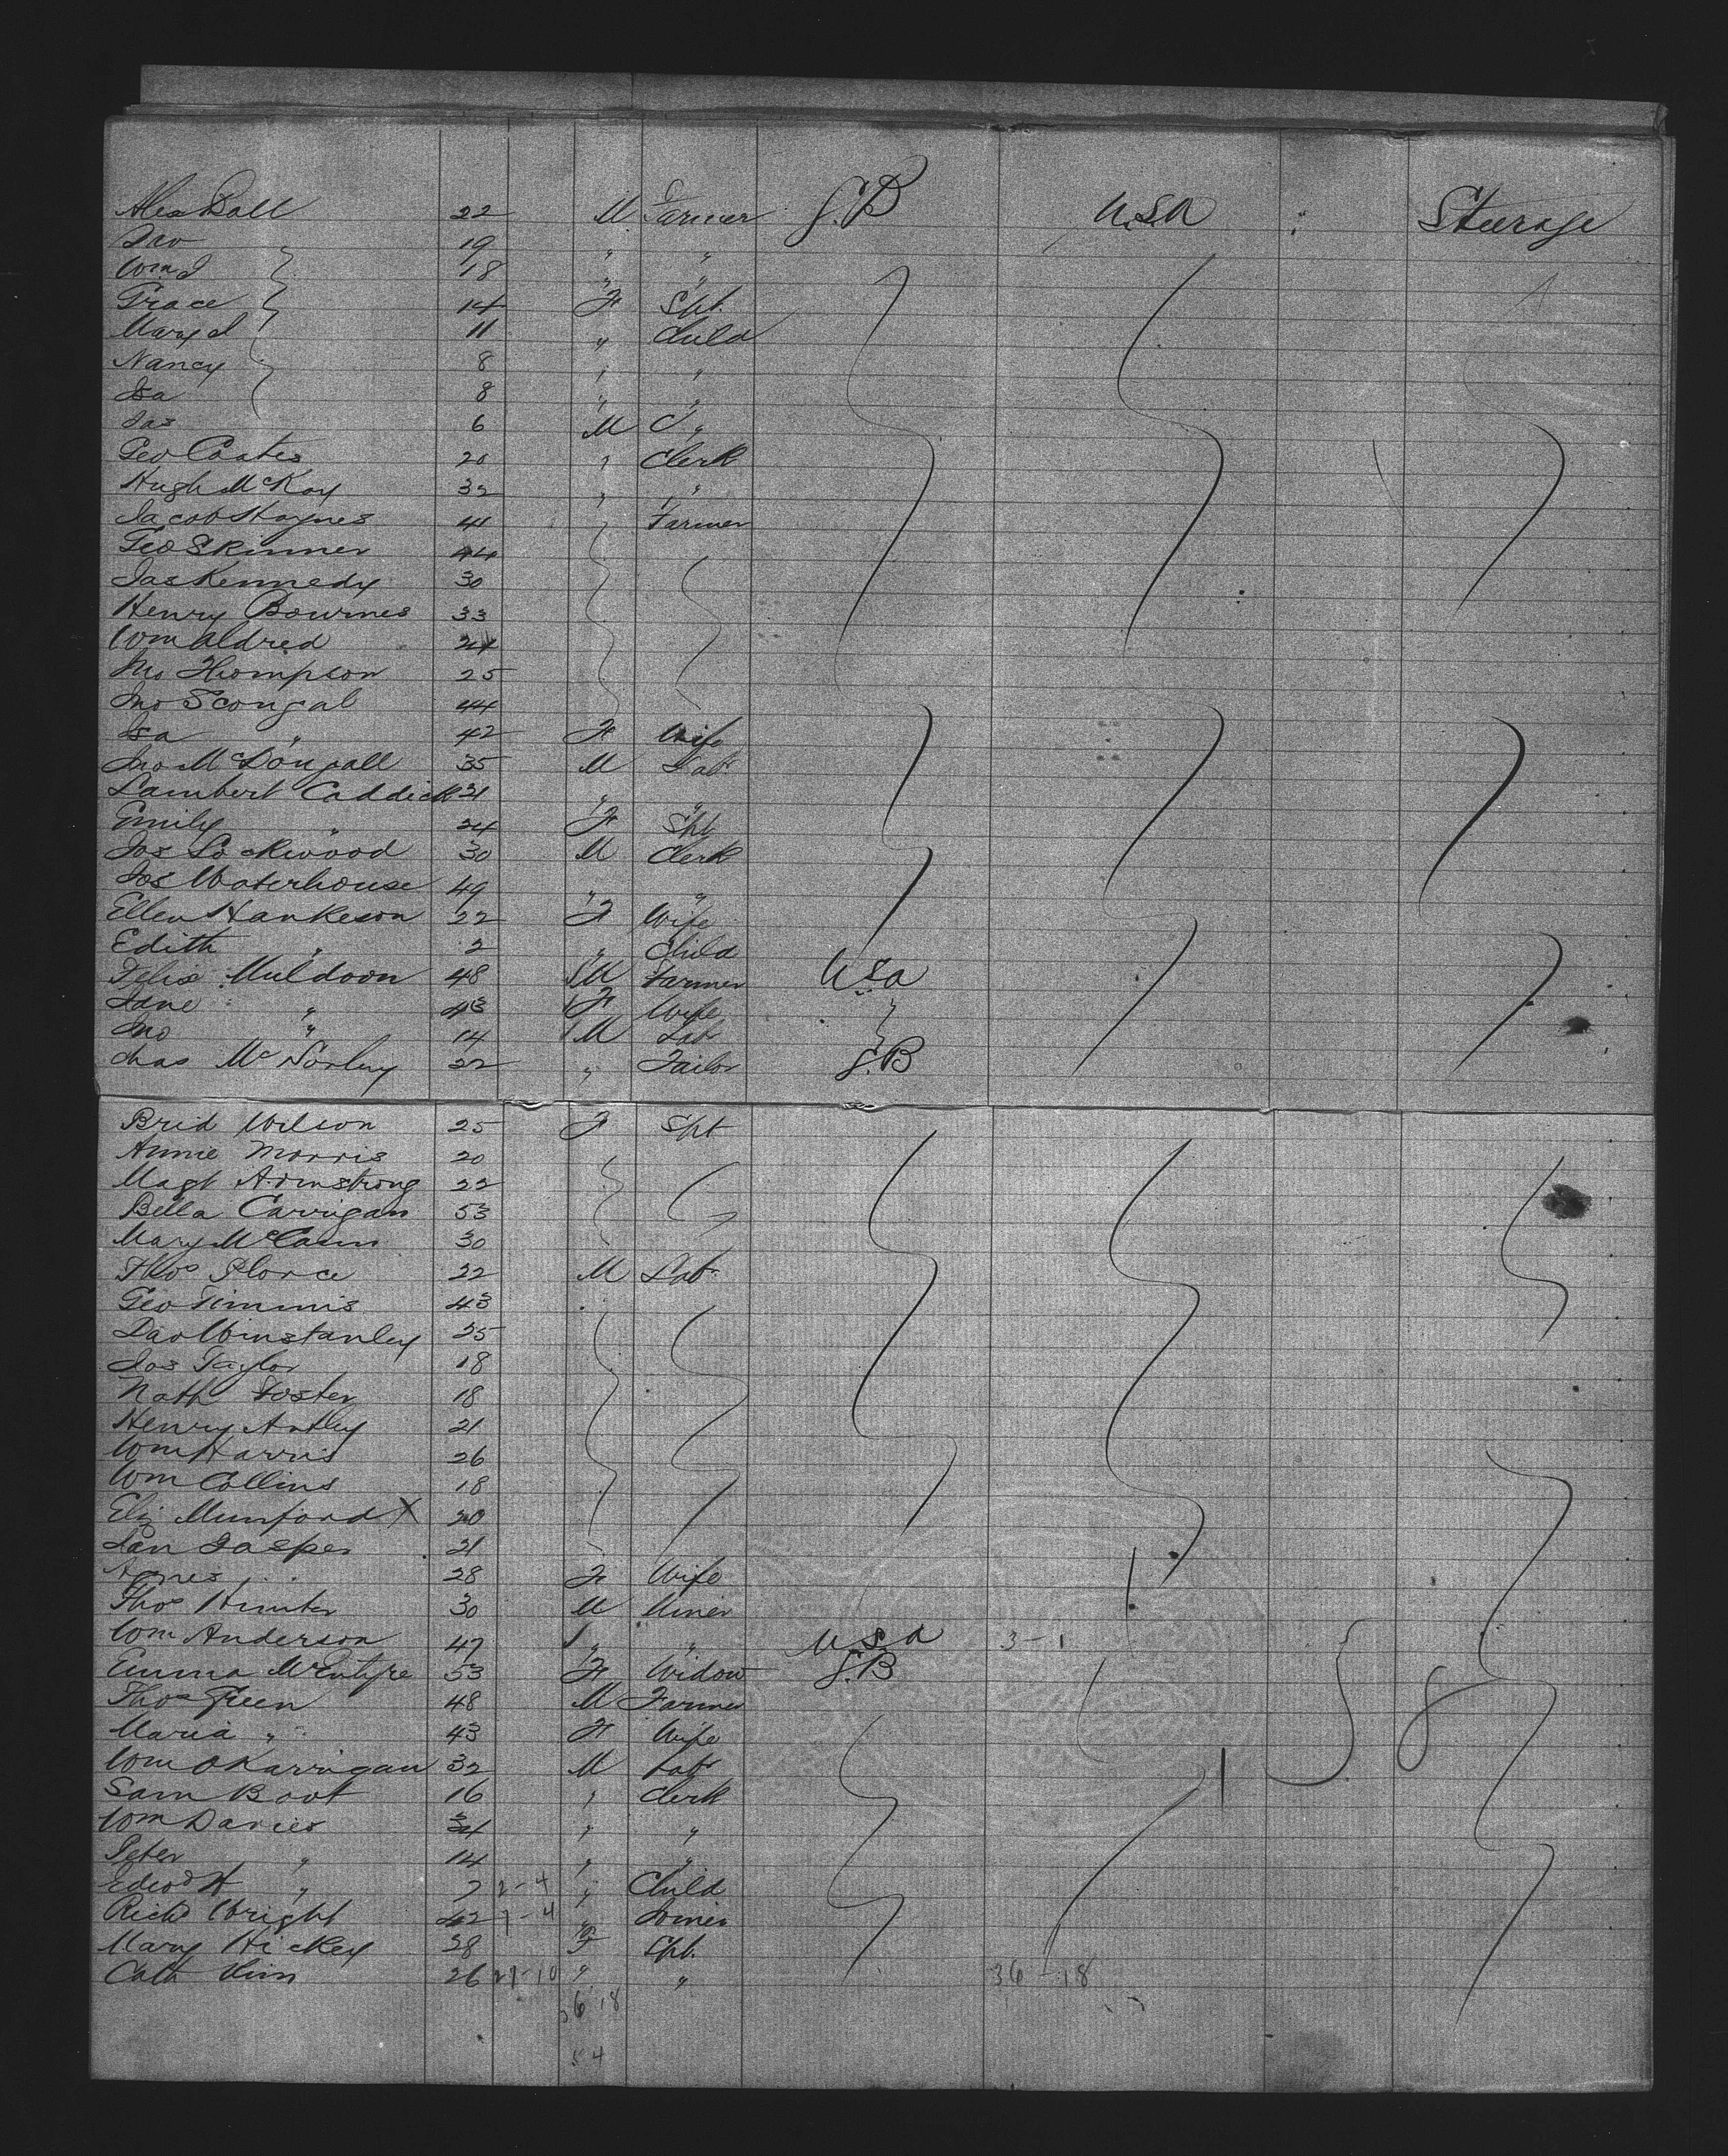 Alex Ball 22 M Farmer G.B U.S.A Steerage
Jno 19 " "
Wm J 18 " "
Grace 14 F Spt.
Mary J 11 " Child
Nancy 8 " "
Isa 8 " "
Jas 6 M C "
Geo Coates 20 " Clerk
Hugh McKay 32 " "
Jacob Haynes 41 Farmer
Geo Skinner 44
Jas Kennedy 30
Henry Bournes 33
Wm Aldred 24
Jno Thompson 25
Jno Scougal 44
Isa " 42 F Wife
Jno McDougall 35 M Lab
Lambert Caddick 31 " "
Emily " 24 F Spt
Jos Lockwood 30 M Clerk
Jos Waterhouse 49 " "
Ellen Hankeson 22 F Wife
Edith " 2 " Child
Felix Muldoon 48 M Farmer U.S.A
Jane " 43 F Wife "
Jno " 14 M Lab "
Chas McSorley 22 " Tailor G.B
Brid Wilson 25 F Spt
Annie Morris 20
Magt Armstrong 22
Bella Carrigan 53
Mary McCann 30
Thos 22 M Lab
Geo Timmis 43
Dav Winstanley 25
Jos Taylor 18
Nath Foster 18
Henry 21
Wm Harris 26
Wm Collins 18
Eliz Munford X 20
Jasper 21
Agnes 28 F Wife
Thos Hunter 30 M Miner
Wm Anderson 47 " " U.S.A 3-1
Emma McEntyre 53 F Widow G.B
Thos Green 48 M Farmer
Maria " 43 F Wife
Wm O Karrigan 32 M Lab
Sam Boot 16 " Clerk
Wm Davies 34 " "
Peter " 14 " "
Edwd H " 7 2-4 " Child
Richd Wright 42 7-4 " Joiner
Mary Hickey 28 F Spt.
Cath 26 27-10 " " 36-18
36 18
54